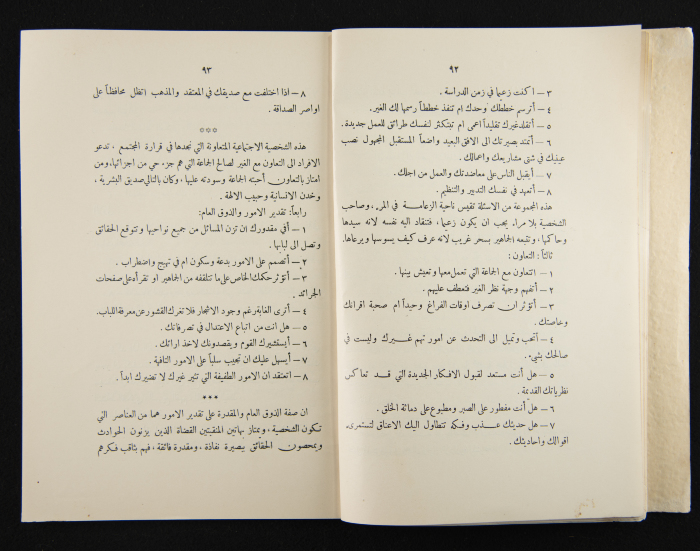 ٩٢
٣ — اكنت زعيما في زمن الدراسة .
٤ — أترسم خططك وحدك ام تنفذ خططاً رسمها لك الغير .
٥ — أتقلد غيرك تقليداً اعمى ام تبتكر لنفسك طرائق للعمل جديدة .
٦ — أتمتد بصيرتك الى الافق البعيد واضعاً المستقبل المجهول نصب
عينيك في شتى مشاريعك واعمالك .
٧ — أيقبل الناس على معاضدتك والعمل من اجلك .
٨ — أتعهد في نفسك التدبير والتنظيم .
هذه المجموعة من الاسئلة تقيس ناحية الزعامة في المرء ، وصاحب
الشخصية بلا مراء يحب ان يكون زعيما ، فتنقاد اليه نفسه لانه سيدها
وحاكمها ، وتتبعه الجماهير بسحر غريب لانه عرف كيف يسوسها ويرعاها .
ثالثاً : التعاون :
١ — اتتعاون مع الجماعة التي تعمل معها وتعيش بينها .
٢ — أتتفهم وجهة نظر الغير فتعطف عليهم .
٣ — أتؤثر ان تصرف اوقات الفراغ وحيداً ام صحبة اقرانك
وخاصتك .
٤ — أتحب وتميل الى التحدث عن امور تهم غيرك وليست في
صالحك بشيء .
٥ — هل أنت مستعد لقبول الافكار الجديدة التي قد تعاكس
نظرياتك القديمة .
٦ — هل أنت مفطور على الصبر ومطبوع على دماثة الخلق .
٧ — هل حديثك عذب وفكه تتطاول اليك الاعناق لتستمرىء
اقوالك واحاديثك .
٩٣
٨ — اذا اختلفت مع صديقك في المعتقد والمذهب اتظل محافظاً على
اواصر الصداقة .
***
هذه الشخصية الاجتماعية المتعاونة التي نجدها في قرارة المجتمع ، تدعو
الافراد الى التعاون مع الغير لصالح الجماعة التي هم جزء حي من اجزائها ، ومن
امتاز بالتعاون أحبته الجماعة وسودته عليها ، وكان بالتالي صديق البشرية ،
وخدن الانسانية وحبيب الالهة .
رابعاً : تقدير الامور والذوق العام :
١ — أفي مقدورك ان تزن المسائل من جميع نواحيها وتتوقع الحقائق
وتصل الى لبابها .
٢ — أتصمم على الامور بدعة وسكون ام في تهيج واضطراب .
٣ — أتؤثر حكمك الخاص على ما تتلقفه من الجماهير او تقرأه على صفحات
الجرائد .
٤ — أترى الغابة رغم وجود الاشجار فلا تغرك القشور عن معرفة اللباب .
٥ — هل انت من اتباع الاعتدال في تصرفاتك .
٦ — أيستشيرك القوم ويقصدونك لاخذ ارائك .
٧ — أيسهل عليك ان تجيب سلباً على الامور التافهة .
٨ — اتعتقد ان الامور الطفيفة التي تثير غيرك لا تضيرك ابداً .
***
ان صفة الذوق العام والمقدرة على تقدير الامور هما من العناصر التي
تكون الشخصية ، ويمتاز بهاتين المنقبتين القضاة الذين يزنون الحوادث
ويمحصون الحقائق ببصيرة نفاذة ، ومقدرة فائقة ، فهم بثاقب فكرهم